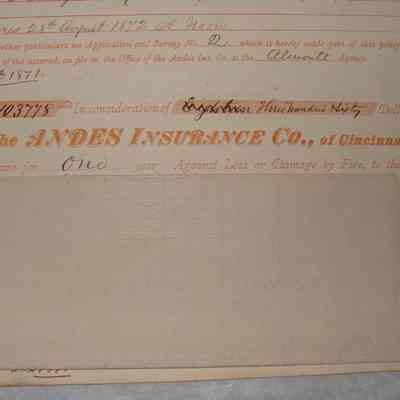 28th August 1872 At Noon
other particulars see Application and Survey No. 2. which is hereby made part of this policy
of the assured, on file in the Office of the Andes Ins. Co. at the Almonte Agency
1871.
103778 In consideration of Three hundred Sixty Doll
he ANDES INSURANCE Co., of Cincinna
for One year Against Loss or Damage by Fire, to the